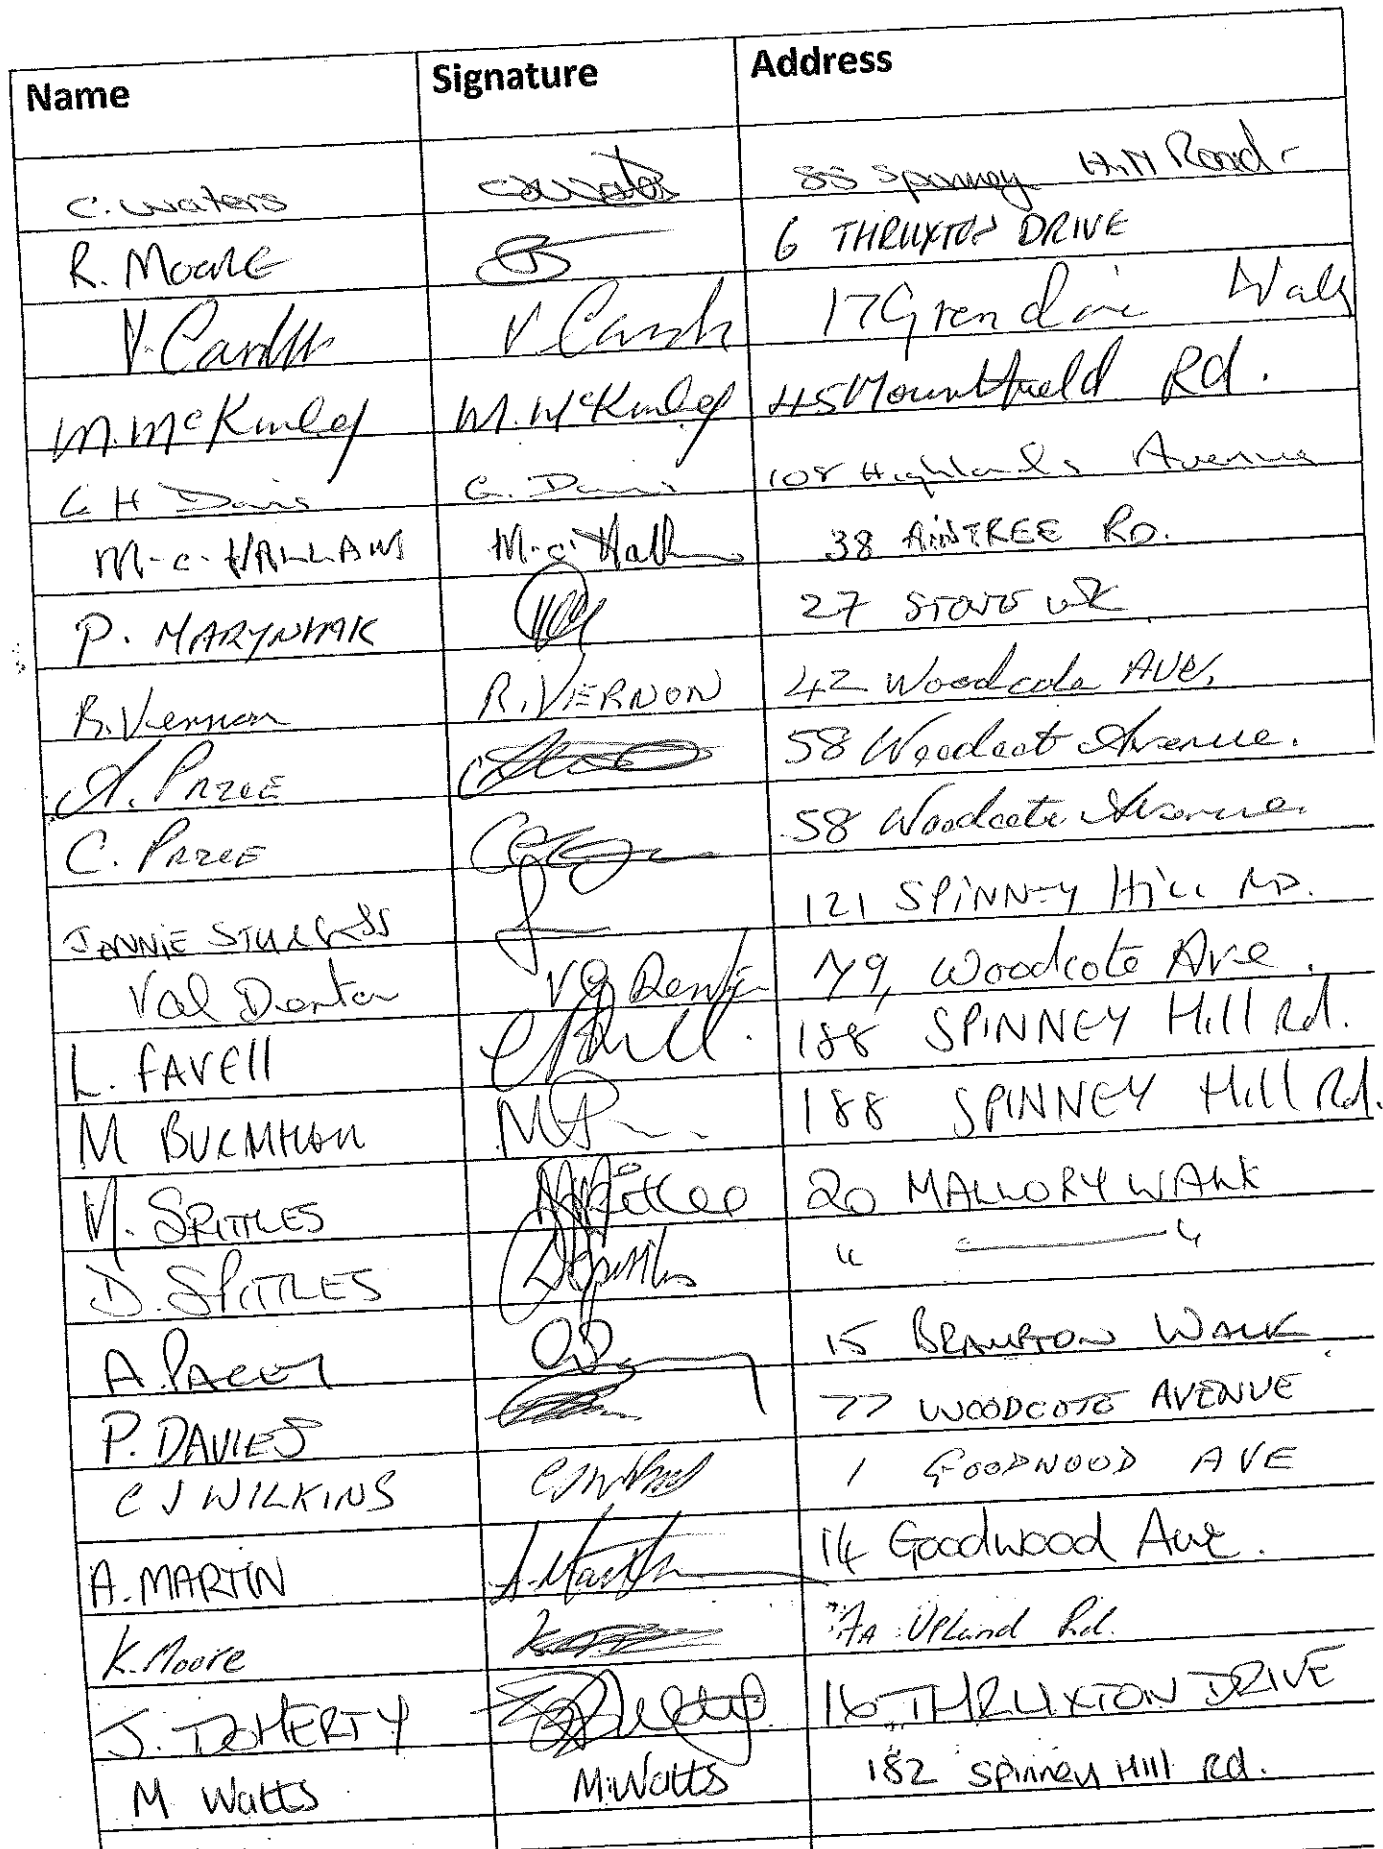 Name Signature Address
C. Waters 88 Spinney Hill Road
R. MOORE 6 THRUXTON DRIVE
V. V. 17 Grendon Walk
M. McKinley M. McKinley 45 Mountfield Rd.
G H Davis G. Davis 108 Highlands Avenue
M.C. HALLAM M.C. Hallam 38 AINTREE RD.
P. MARYNIAK 27 STOWE WK
R. Vernon R. VERNON 42 Woodcote AVE.
A. PRICE 58 Woodcote Avenue.
C. PRICE 58 Woodcote Avenue.
JANNIE STURGESS 121 SPINNEY HILL RD.
Val Denton V Denton 79, Woodcote Ave.
L. FAVEll 188 SPINNEY Hill Rd.
M 188 SPINNEY Hill Rd.
M. SPITTLES M Spittles 20 MALLORY WALK
D. SPITTLES D Spittles " ——— "
A. PACEY 15 BRAMPTON WALK
P. DAVIES 77 WOODCOTE AVENUE
C J WILKINS 1 GOODWOOD AVE
A. MARTIN A. Martin 14 Goodwood Ave.
K. Moore 7A Upland Rd.
J. DOHERTY 16 THRUXTON DRIVE
M Watts M Watts 182 Spinney Hill Rd.